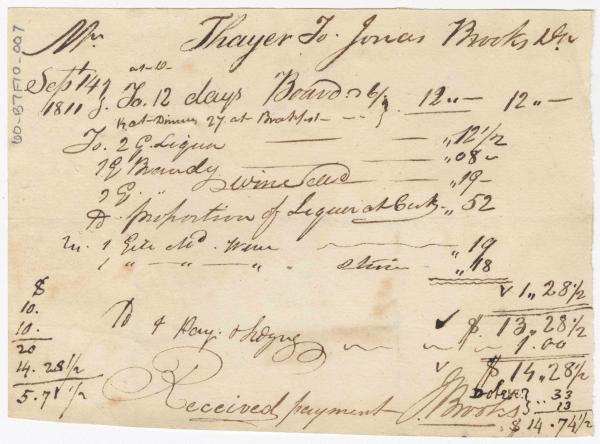 60-B7F10-007
Mr. Thayer To Jonas Brooks Dr
Sept 14th
1811 To 12 days Board 6/ 12 "— 12 "—
at Dinner 27 at Breakfast
To 2 G. Liquor — — " 12 1/2
1 G Brandy — — " 08
2 G. " Wine — " 19
Do proportion of Liquor at " 52
1 Gill Wine " 19
1 " " " " 18
1 " 28 1/2
$ 13 " 28 1/2
To Hay 1.00
$ 14 " 28 1/2
33
13
$ 14.74 1/2
Received payment
J Brooks
$
10.
10.
20
14.28 1/2
5.71 1/2